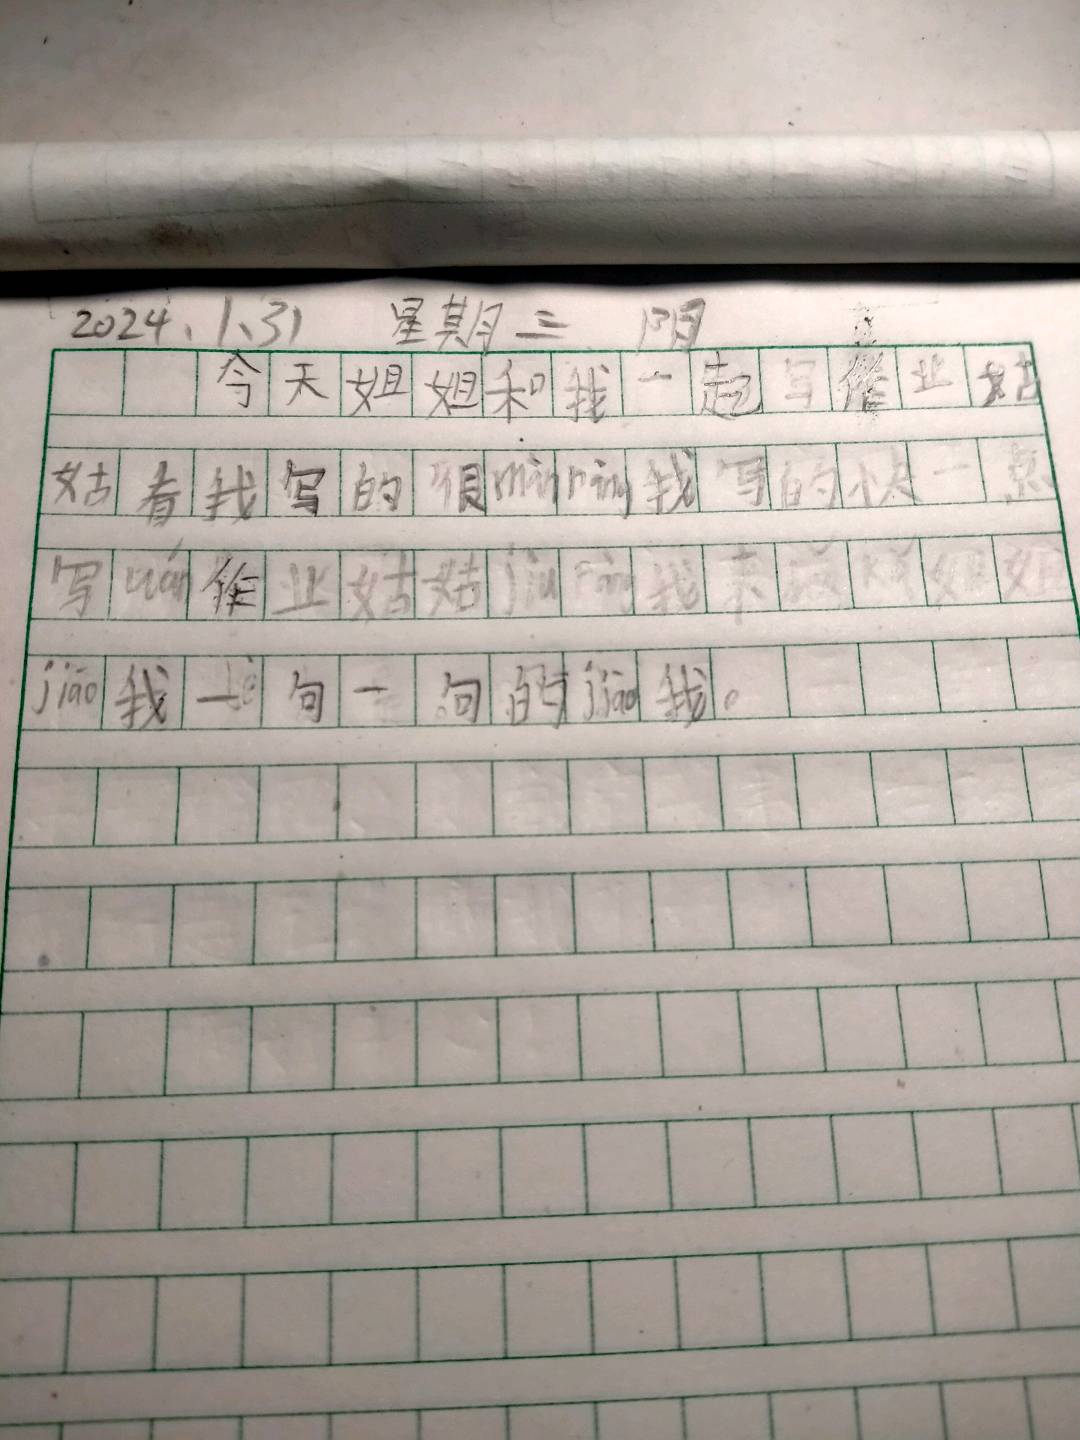 2024.1.31 星期三 阴
今天姐姐和我一起写作业姑
姑看我写的很màn ràng我写的快一点
写wán作业姑姑jiù ràng我来 姐姐
jiāo我一 句一句的jiāo我。